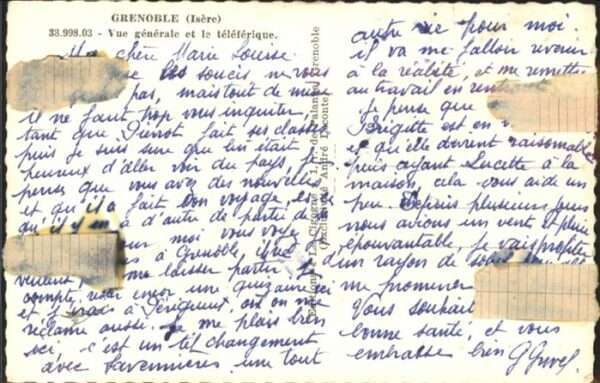 GRENOBLE (Isère)
38.998.03 - Vue générale et le téléférique.
Ma chère Marie Louise
se les soucis ne vous
pas, mais tout de même
il ne faut trop vous inquiéter,
tant que Pierrot fait ses classes
puis je suis sure que lui était
heureux d'aller voir du pays, je
pense que vous avez des nouvelles
et qu'il a fait bon voyage, est-ce
qu'il y en a d'autre de partie de
moi vous voyez
à Grenoble
veulent me laisser partir je
compte rester encor une quizaine ici
et j'irais à Périgueux, où on me
réclame aussi. Je me plais bien
ici, c'est un tel changement
avec une tout
autre vie pour moi.
il va me falloir revenir
à la réalité, et me remettre
au travail en
Je pense que
Brigitte est en
qu'elle devient raisonnable
puis ayant Lucette à la
maison, cela vous aide un
peu. Depuis plusieurs jours
nous avions un vent et pluie
épouvantable, je vais profiter
d'un rayon de soleil
me promener
Vous souhait
bonne santé, et vous
embrasse bien